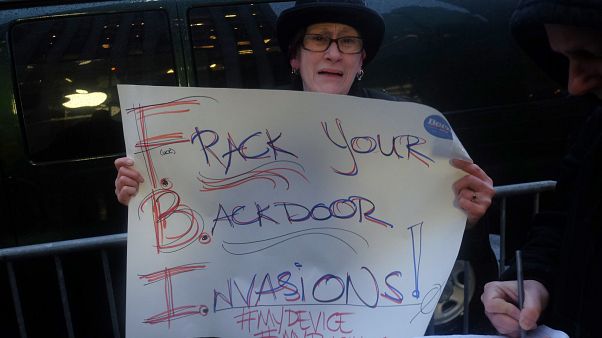 F. RACK YOUR
B. ACKDOOR
I. NVASIONS!
#MYDEVICE